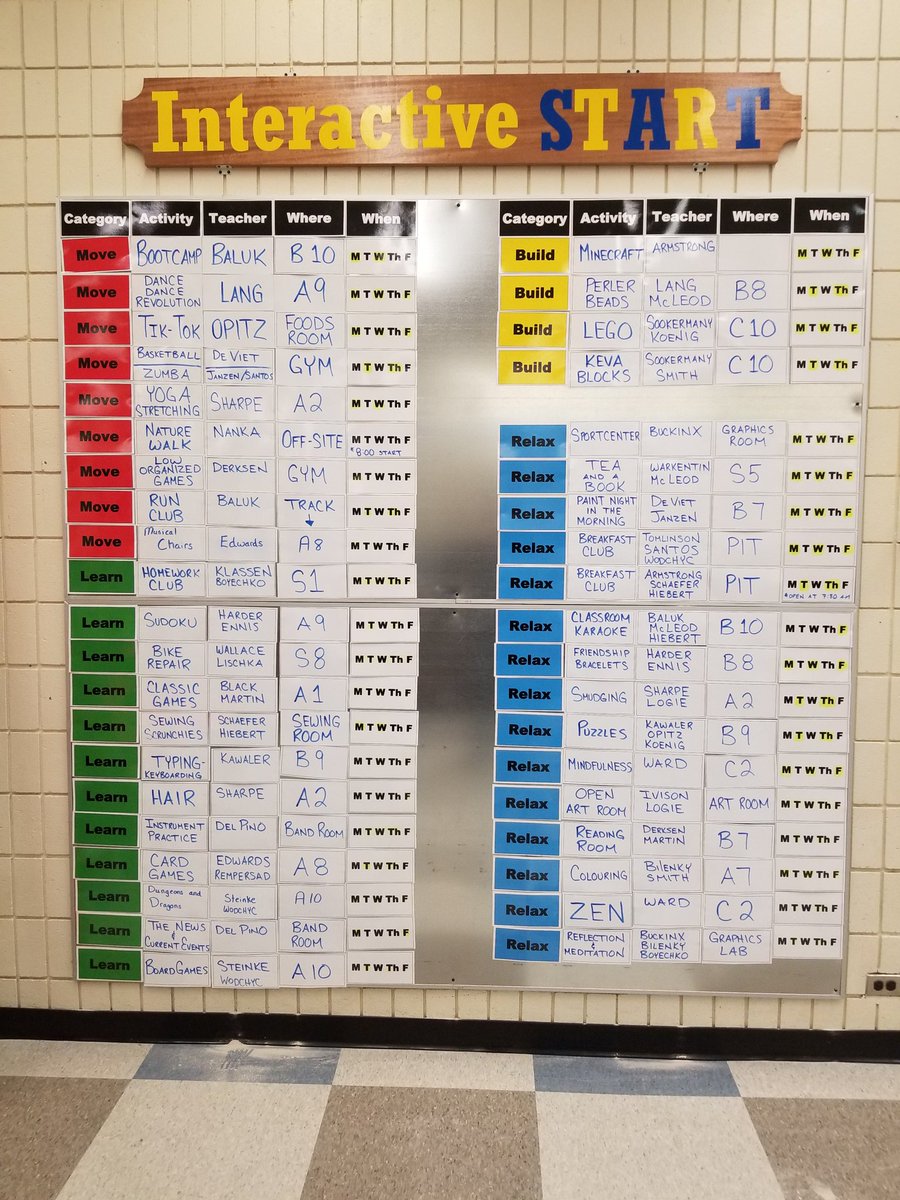 Interactive START
Category Activity Teacher Where When
Move BOOTCAMP BALUK B 10 M T W Th F
Move DANCE DANCE REVOLUTION LANG A9 M T W Th F
Move TIK-TOK OPITZ FOODS ROOM M T W Th F
Move BASKETBALL ZUMBA DE VIET JANZEN/SANTOS GYM M T W Th F
Move YOGA STRETCHING SHARPE A2 M T W Th F
Move NATURE WALK NANKA OFF-SITE M T W Th F
*8:00 START
Move LOW ORGANIZED GAMES DERKSEN GYM M T W Th F
Move RUN CLUB BALUK TRACK M T W Th F
Move Musical Chairs Edwards A8 M T W Th F
Learn HOMEWORK CLUB KLASSEN BOYECHKO S1 M T W Th F
Learn SUDOKU HARDER ENNIS A9 M T W Th F
Learn BIKE REPAIR WALLACE LISCHKA S8 M T W Th F
Learn CLASSIC GAMES BLACK MARTIN A1 M T W Th F
Learn SEWING SCRUNCHIES SCHAEFER HIEBERT SEWING ROOM M T W Th F
Learn TYPING- KEYBOARDING KAWALER B9 M T W Th F
Learn HAIR SHARPE A2 M T W Th F
Learn INSTRUMENT PRACTICE DEL PINO BAND ROOM M T W Th F
Learn CARD GAMES EDWARDS REMPERSAD A8 M T W Th F
Learn Dungeons and Dragons Steinke WODCHYC A10 M T W Th F
Learn THE NEWS & CURRENT EVENTS DEL PINO BAND ROOM M T W Th F
Learn BOARD GAMES STEINKE WODCHYC A10 M T W Th F
Category Activity Teacher Where When
Build MINECRAFT ARMSTRONG M T W Th F
Build PERLER BEADS LANG MCLEOD B8 M T W Th F
Build LEGO SOOKERMANY KOENIG C10 M T W Th F
Build KEVA BLOCKS SOOKERMANY SMITH C10 M T W Th F
Relax SPORTCENTER BUCKINX GRAPHICS ROOM M T W Th F
Relax TEA AND A BOOK WARKENTIN MCLEOD S5 M T W Th F
Relax PAINT NIGHT IN THE MORNING DE VIET JANZEN B7 M T W Th F
Relax BREAKFAST CLUB TOMLINSON SANTOS WODCHYC PIT M T W Th F
Relax BREAKFAST CLUB ARMSTRONG SCHAEFER HIEBERT PIT M T W Th F
*OPEN AT 7:30 AM
Relax CLASSROOM KARAOKE BALUK MCLEOD HIEBERT B10 M T W Th F
Relax FRIENDSHIP BRACELETS HARDER ENNIS B8 M T W Th F
Relax SMUDGING SHARPE LOGIE A2 M T W Th F
Relax PUZZLES KAWALER OPITZ KOENIG B9 M T W Th F
Relax MINDFULNESS WARD C2 M T W Th F
Relax OPEN ART ROOM IVISON LOGIE ART ROOM M T W Th F
Relax READING ROOM DERKSEN MARTIN B7 M T W Th F
Relax COLOURING BILENKY SMITH A7 M T W Th F
Relax ZEN WARD C2 M T W Th F
Relax REFLECTION & MEDITATION BUCKINX BILENKY BOYECHKO GRAPHICS LAB M T W Th F